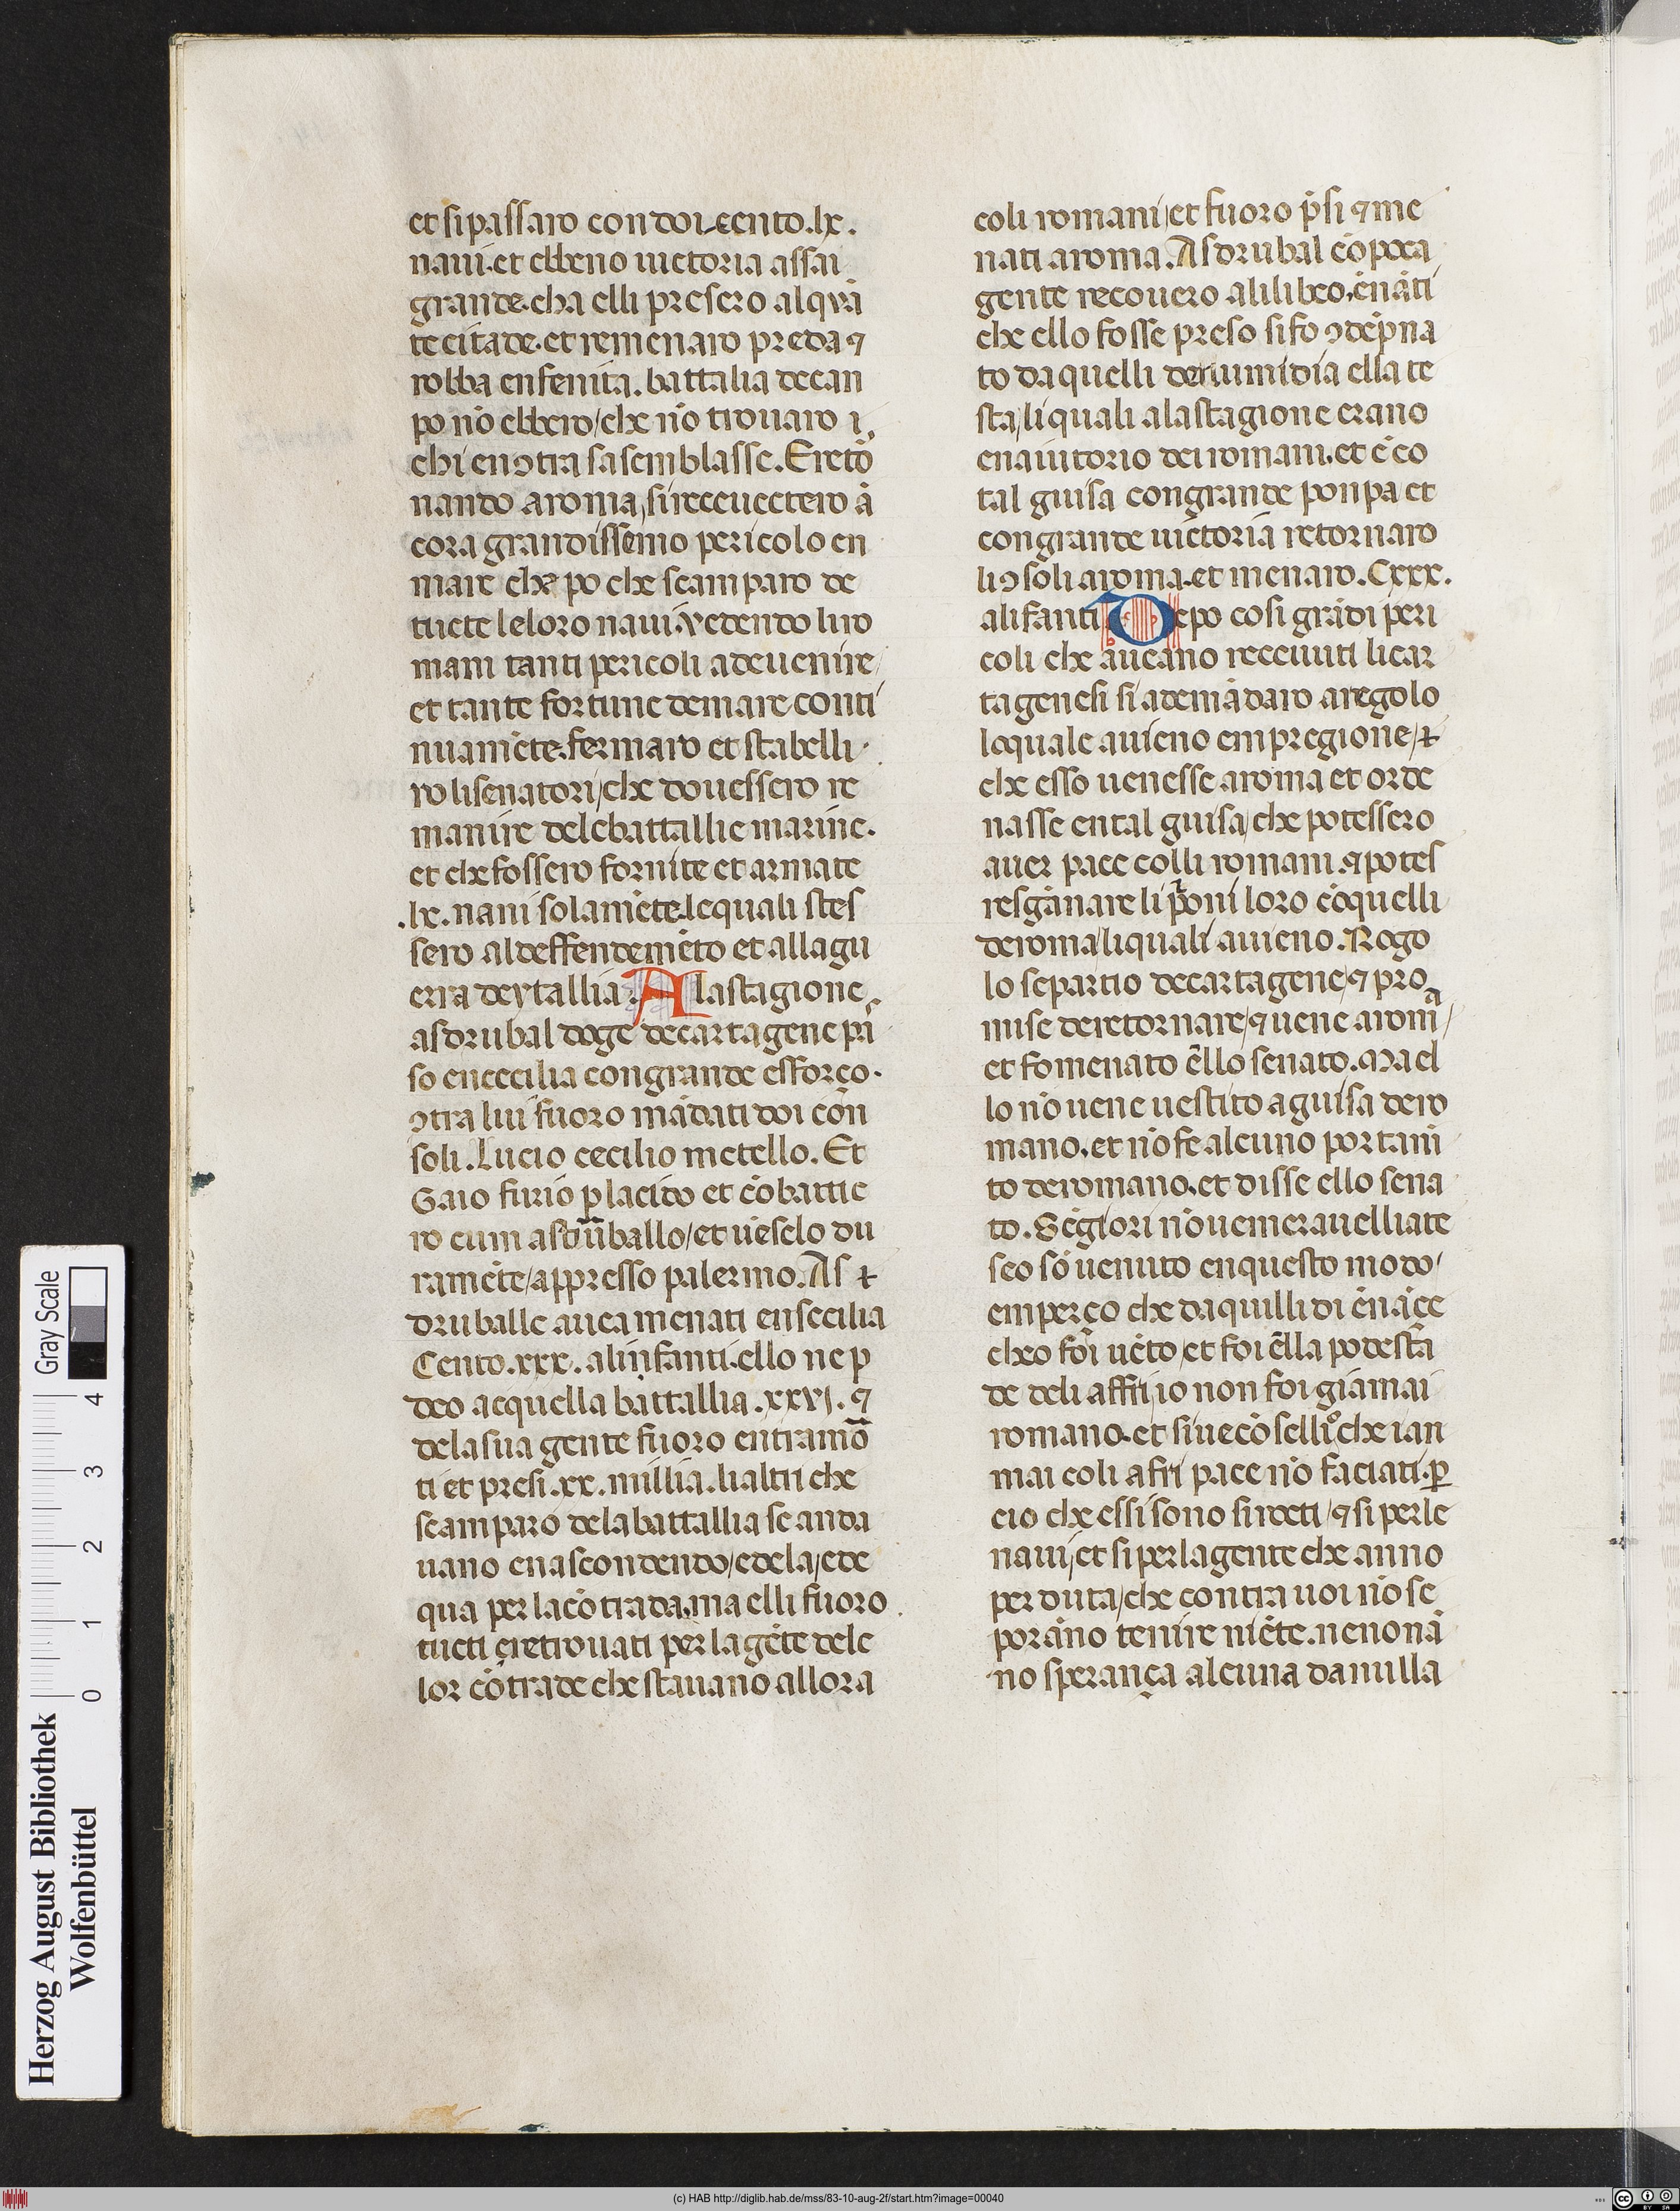 et si passaro con doi cento.lx.
naui.et ebbeno uictoria assai
grande.cha elli presero alqua͂
te citade.et remenaro preda ⁊
robba enfenita.battalia de can
po no͂ ebbero/che no͂ trouaro i
chi enꝯtra sa semblasse.Ereto͂
nando a roma/si receuectero a͂
cora grandissemo pericolo en
mare che po che scamparo de
tucte le loro naui.vedendo li ro
mani tanti pericoli adeuenire/
et tante fortune de mare conti
nuame͂te.fermaro et stabelli
ro li senatori/che douessero re
manire dele battallie marine.
et che fossero fornite et armate
.lx.naui solame͂te.lequali stes
sero al deffendeme͂to et alla gu
erra de ytallia. Ala stagione
asdrubal doge de cartagene pa͂
so en cecilia con grande esforço.
ꝯtra lui fuoro ma͂dati doi co͂n
soli.Lucio cecilio metello.Et
Gaio furio placido et co͂battie
ro cum asdruballo/et ue͂selo du
rame͂te/appresso palermo.As
druballe auea menati en secilia
Cento.xxx.alinfanti.ello ne p
deo acquella battallia.xxvj.⁊
dela sua gente fuoro entra mo͂
ti et presi.xx.millia.li altri che
scamparo dela battallia se anda
uano enascondendo/e de la/e de
qua per la co͂trada.ma elli fuoro
tucti eretrouati per la ge͂te dele
lor co͂trade che stauano allora
coli romani/et fuoro p͂si ⁊ me
nati a roma.Asdrubal co͂ poca
gente recouero a lilibeo.ena͂ti
che ello fosse preso si fo ꝯde͂pna
to da quelli de numidia ella te
sta/li quali ala stagione erano
en aiutorio dei romani.et e͂ co
tal guisa con grande ponpa et
con grande uictoria retornaro
li ꝯsoli a roma.et menaro.Cxxx.
alifanti Depo cosi gra͂di peri
coli che aueano receuuti li car
tagenesi si adema͂daro a regolo
loquale auieno em pregione/
che esso uenesse a roma et orde
nasse en tal guisa/che potessero
auer pace colli romani.⁊ potes
res ga͂nare li p͂oni loro co͂ quelli
de roma/li quali auieno.Rogo
lo se partio de cartagene/⁊ pro
mise de retornare/⁊ uene a rom
et fo menato e͂llo senato.Ma el
lo no͂ uene uestito a guisa de ro
mano.et no͂ fe alcuno portam
to de romano.et disse ello sena
to.Se͂giori no͂ ue merauelliate
s eo so͂ uenuto en questo modo
em perço che da quilli di e͂na͂çe
ch eo foi ue͂to/et foi e͂lla podesta
de deli affri/io non foi giamai
romano.et si ue co͂sellio che ian
mai coli afri pace no͂ faciati.ꝑ
cio che essi sono si recti/⁊ si per le
naui/et si per la gente che anno
perduta/che contra uoi no͂ se
pora͂no tenire nie͂te.ne nona͂
no sperança alcuna da nulla
Herzog August Bibliothek
Wolfenbüttel
0 1 2 3 4
Gray Scale
(c) HAB http://diglib.hab.de/mss/83-10-aug-2f/start.htm?image=00040